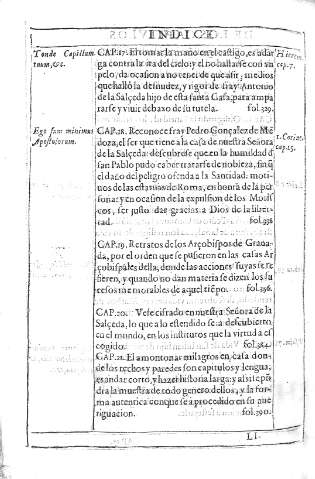 INDICE
Tonde Capillum tuum, &c.
CAP. 17. El tomar la mano en el castigo, es adar
ga contra la ira del cielo: y el no hallarse con vn
pelo, da ocasion a no tener de que asir; medios
que halló la desnudez, y rigor de fray Antonio
de la Salçeda hijo de esta santa Casa, para ampa
rarse y viuir debaxo de su tutela. fol. 329.
Ego sum minimus Apostolorum.
CAP. 18. Reconoce fray Pedro Gonçalez de Mé
doça, el ser que tiene a la casa de nuestra Señora
de la Salçeda: descubrese que en la humildad d
san Pablo pudo caber tratarse de nobleza, sin q̃
el dago del peligro ofenda a la Santidad: moti
uos de las estatuas de Roma, en honra de la per
sona: y en ocasion de la expulsion de los Moris
cos, ser justo dar gracias a Dios de la liber-
tad. fol. 338
CAP. 19. Retratos de los Arçobispos de Grana-
da, por el orden que se pusieron en las casas Ar
çobispales della, donde las acciones suyas se re
fieren, y quando no dan materia se dizen los su
cesos memorables de aquel tiẽpo. fol. 356.
CAP. 20. Vese cifrado en nuestra Señora de la
Salçeda, lo que a lo estendido se a descubierto
en el mundo, en los institutos que la virtud a es
cogido. fol. 384.
CAP. 21. El amontonar milagros en casa don-
de los techos y paredes son capitulos y lengua,
es andar corto, y hazer historia larga: y assi se pó
drá la muestra de todo genero dellos, y la for
ma autentica con que se a procedido en su aue
riguacion. fol. 390.
cap. 7.
1. Corint.
cap. 15.
LI.